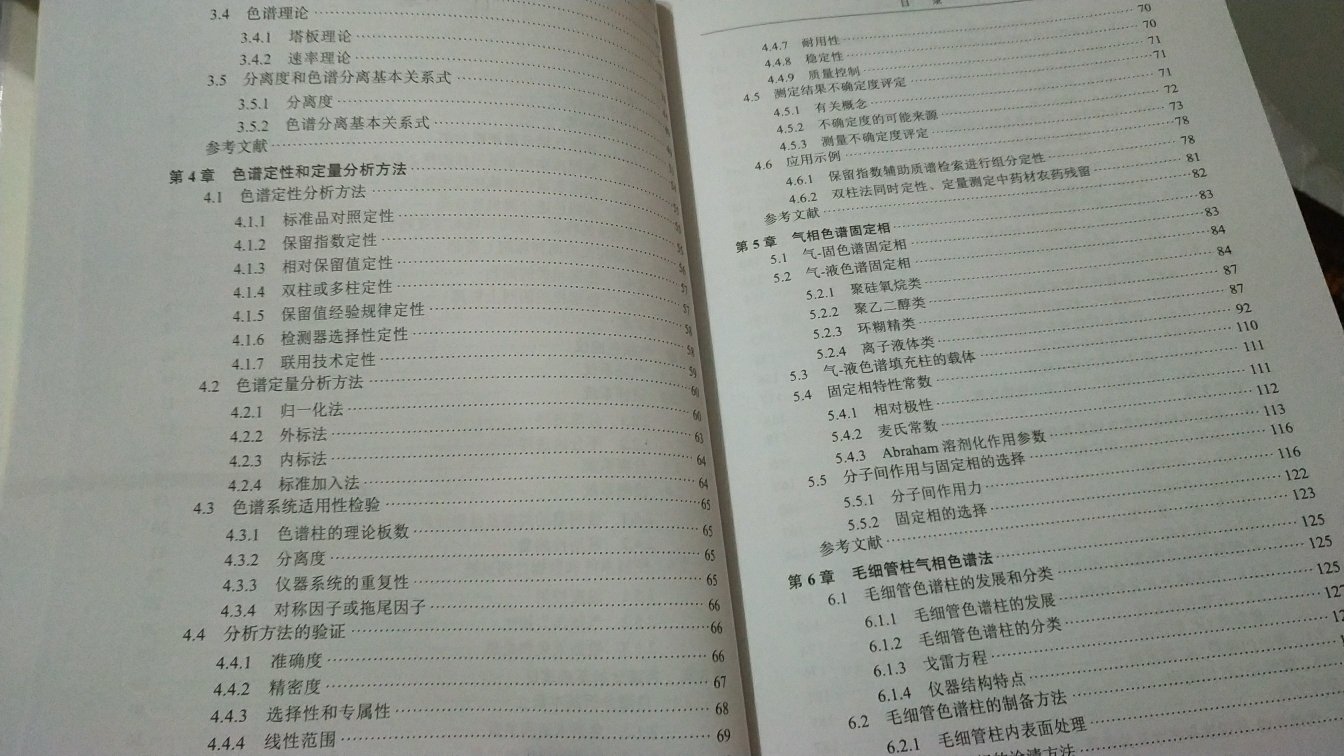 3.4 色谱理论
3.4.1 塔板理论
3.4.2 速率理论
3.5 分离度和色谱分离基本关系式
3.5.1 分离度
3.5.2 色谱分离基本关系式
参考文献
第4章 色谱定性和定量分析方法
4.1 色谱定性分析方法 55
4.1.1 标准品对照定性 55
4.1.2 保留指数定性 56
4.1.3 相对保留值定性 57
4.1.4 双柱或多柱定性 57
4.1.5 保留值经验规律定性 58
4.1.6 检测器选择性定性 58
4.1.7 联用技术定性 59
4.2 色谱定量分析方法 60
4.2.1 归一化法 60
4.2.2 外标法 63
4.2.3 内标法 64
4.2.4 标准加入法 64
4.3 色谱系统适用性检验 65
4.3.1 色谱柱的理论板数 65
4.3.2 分离度 65
4.3.3 仪器系统的重复性 65
4.3.4 对称因子或拖尾因子 66
4.4 分析方法的验证 66
4.4.1 准确度 66
4.4.2 精密度 67
4.4.3 选择性和专属性 68
4.4.4 线性范围 69
目 录
4.4.7 耐用性 70
4.4.8 稳定性 70
4.4.9 质量控制 71
4.5 测定结果不确定度评定 71
4.5.1 有关概念 71
4.5.2 不确定度的可能来源 72
4.5.3 测量不确定度评定 73
4.6 应用示例 78
4.6.1 保留指数辅助质谱检索进行组分定性 78
4.6.2 双柱法同时定性、定量测定中药材农药残留 81
参考文献 82
第5章 气相色谱固定相 83
5.1 气-固色谱固定相 83
5.2 气-液色谱固定相 84
5.2.1 聚硅氧烷类 84
5.2.2 聚乙二醇类 87
5.2.3 环糊精类 87
5.2.4 离子液体类 92
5.3 气-液色谱填充柱的载体 110
5.4 固定相特性常数 111
5.4.1 相对极性 111
5.4.2 麦氏常数 112
5.4.3 Abraham 溶剂化作用参数 113
5.5 分子间作用与固定相的选择 116
5.5.1 分子间作用力 116
5.5.2 固定相的选择 122
参考文献 123
第6章 毛细管柱气相色谱法 125
6.1 毛细管色谱柱的发展和分类 125
6.1.1 毛细管色谱柱的发展 125
6.1.2 毛细管色谱柱的分类 127
6.1.3 戈雷方程
6.1.4 仪器结构特点
6.2 毛细管色谱柱的制备方法
6.2.1 毛细管柱内表面处理